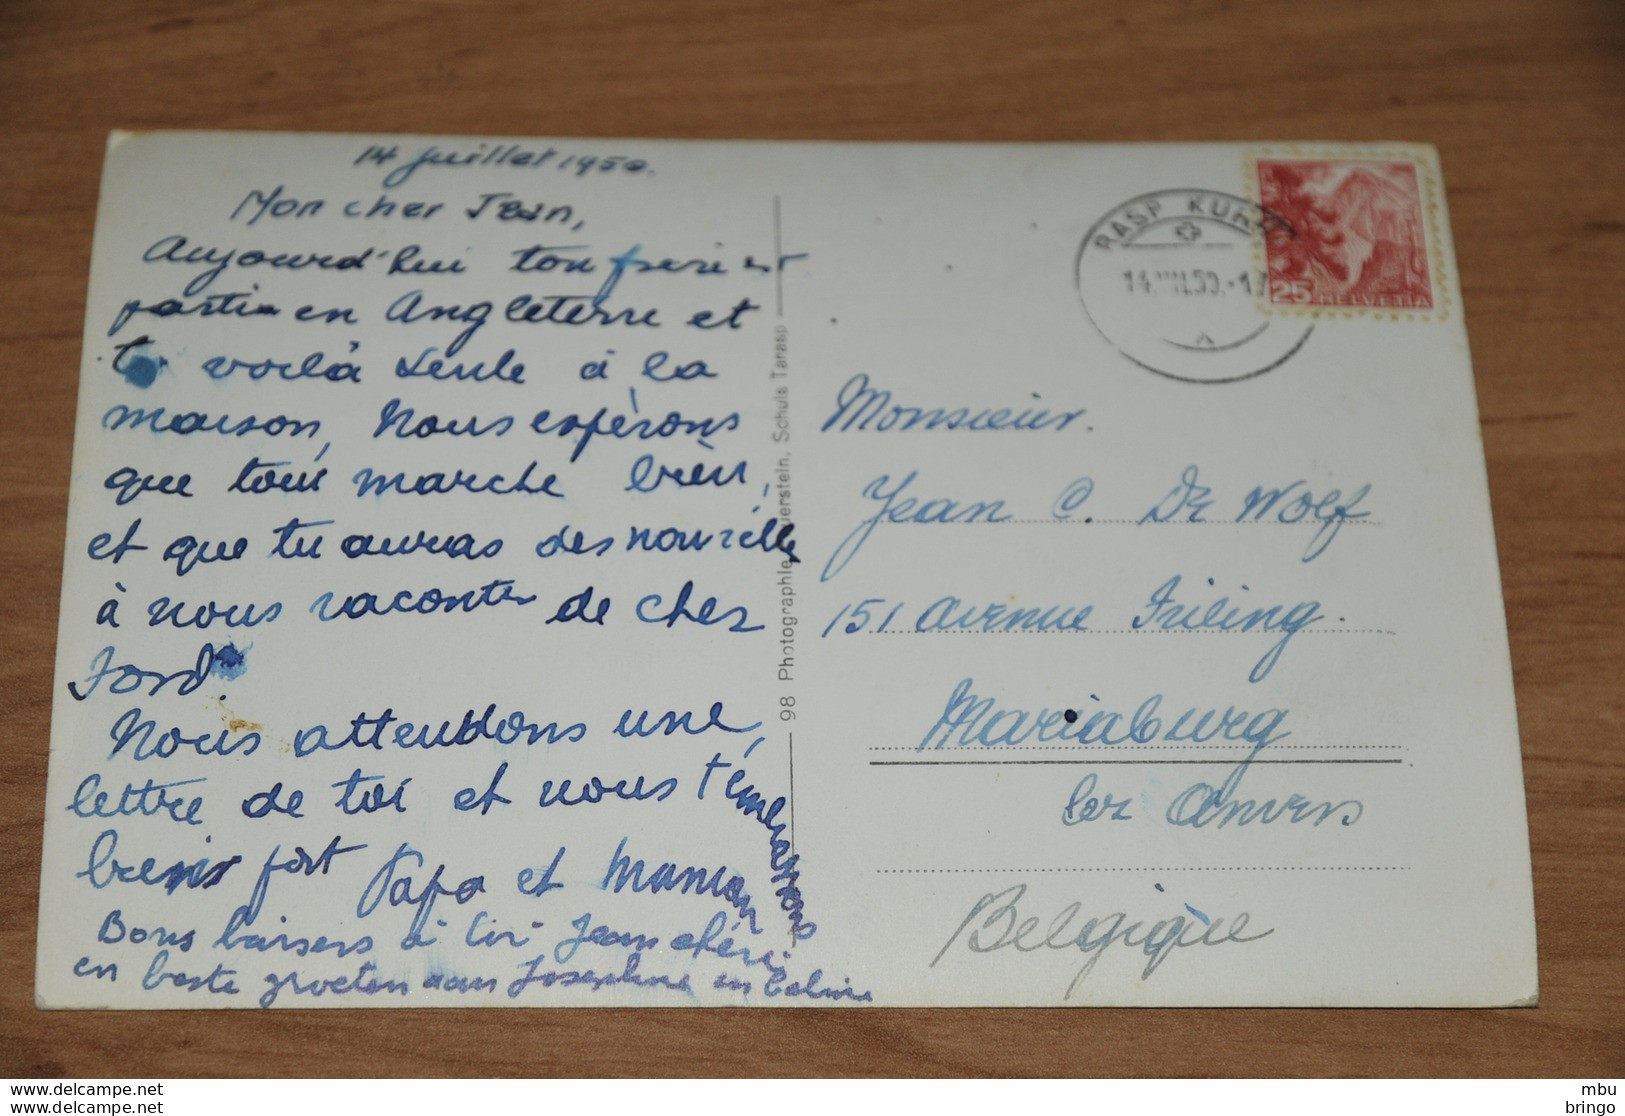 14 juillet 1950.
Mon cher Jean,
Aujourd'hui ton frère est
parti en Angleterre et
te voilà seule à la
maison, Nous espérons
que tout marche bien,
et que tu auras des nouvelles
à nous raconter de chez
Ford.
Nous attendons une
lettre de toi et nous t'
bien fort Papa et Maman
Bons baisers à toi Jean chéri
en beste groeten aan Josephine en
98 Photographie Schuls Tarasp
RASP KURH
14.VII.50.-17
25 HELVETIA
Monsieur.
Jean C. De Wolf
151 Avenue Frieling.
Mariaburg
lez Anvers
Belgique
www.delcampe.net
www.delcampe.net
mbu
bringo